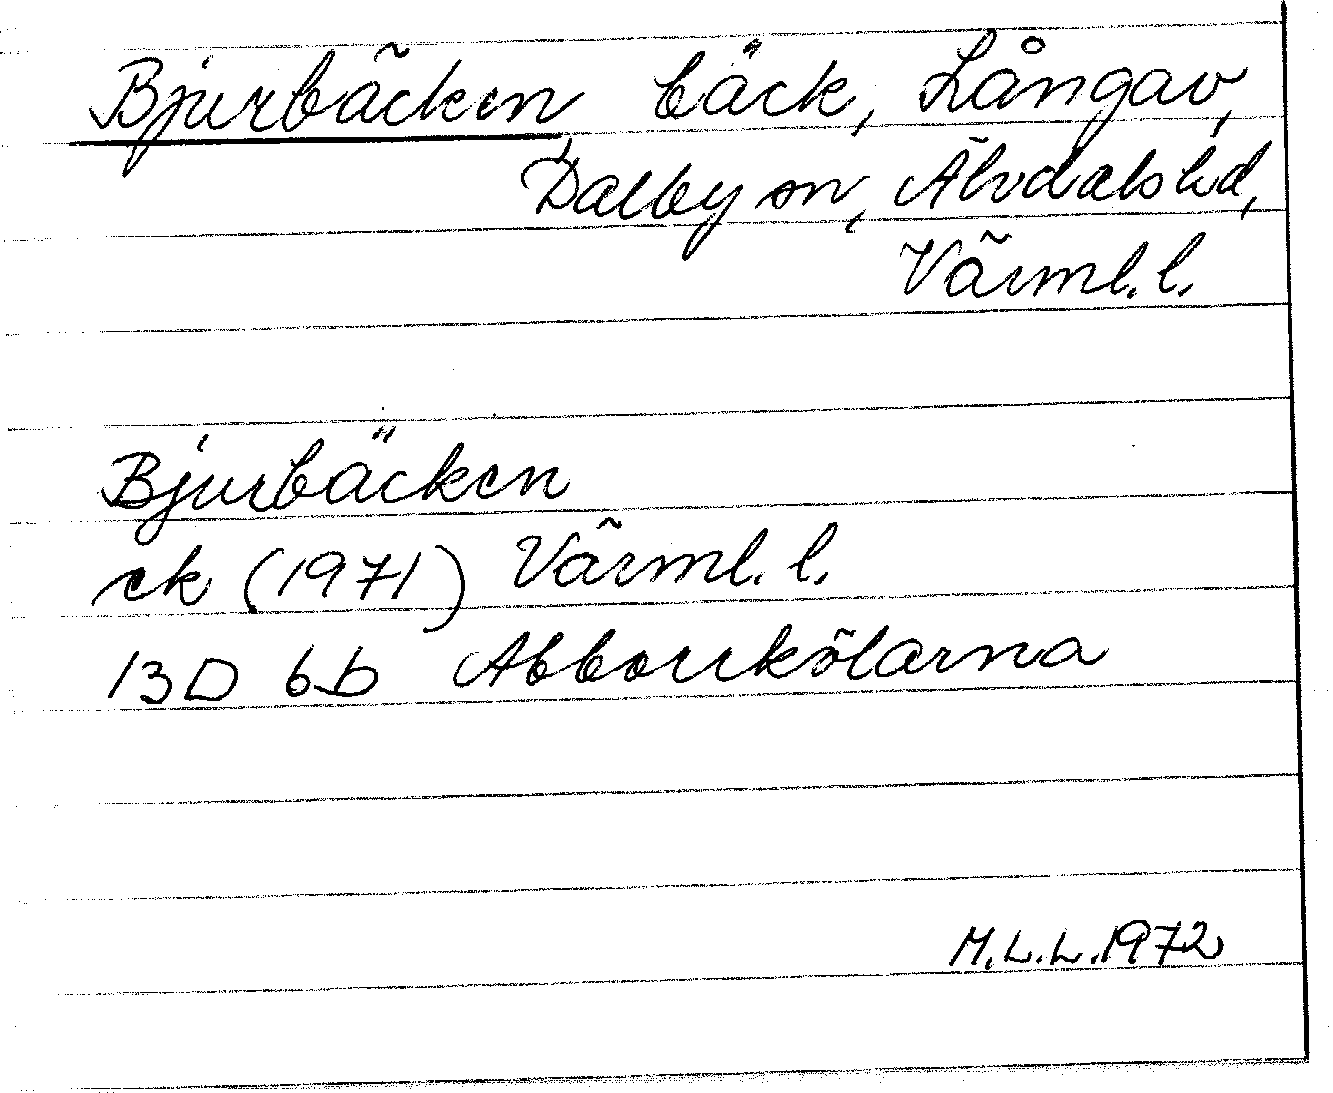 Bjurbäcken, bäck, Långav,
Dalby sn, Älvdals hd,
Värml. l.
Bjurbäcken
ek (1971) Värml. l.
13D 6b Abborrkölarna
M.L.L. 1972